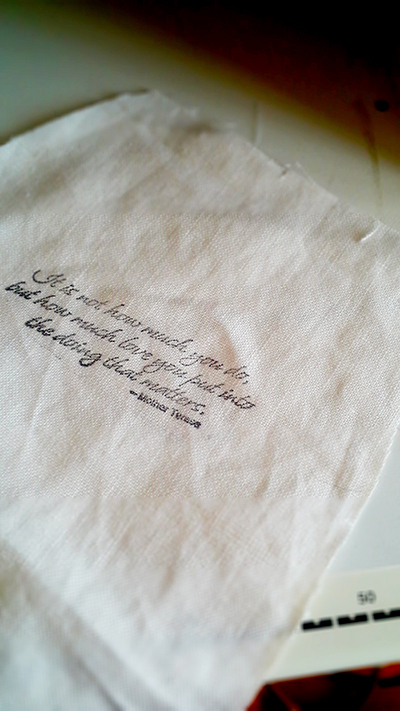 It is not how much you do,
but how much love you put into
the doing that matters.
—Mother Teresa
50